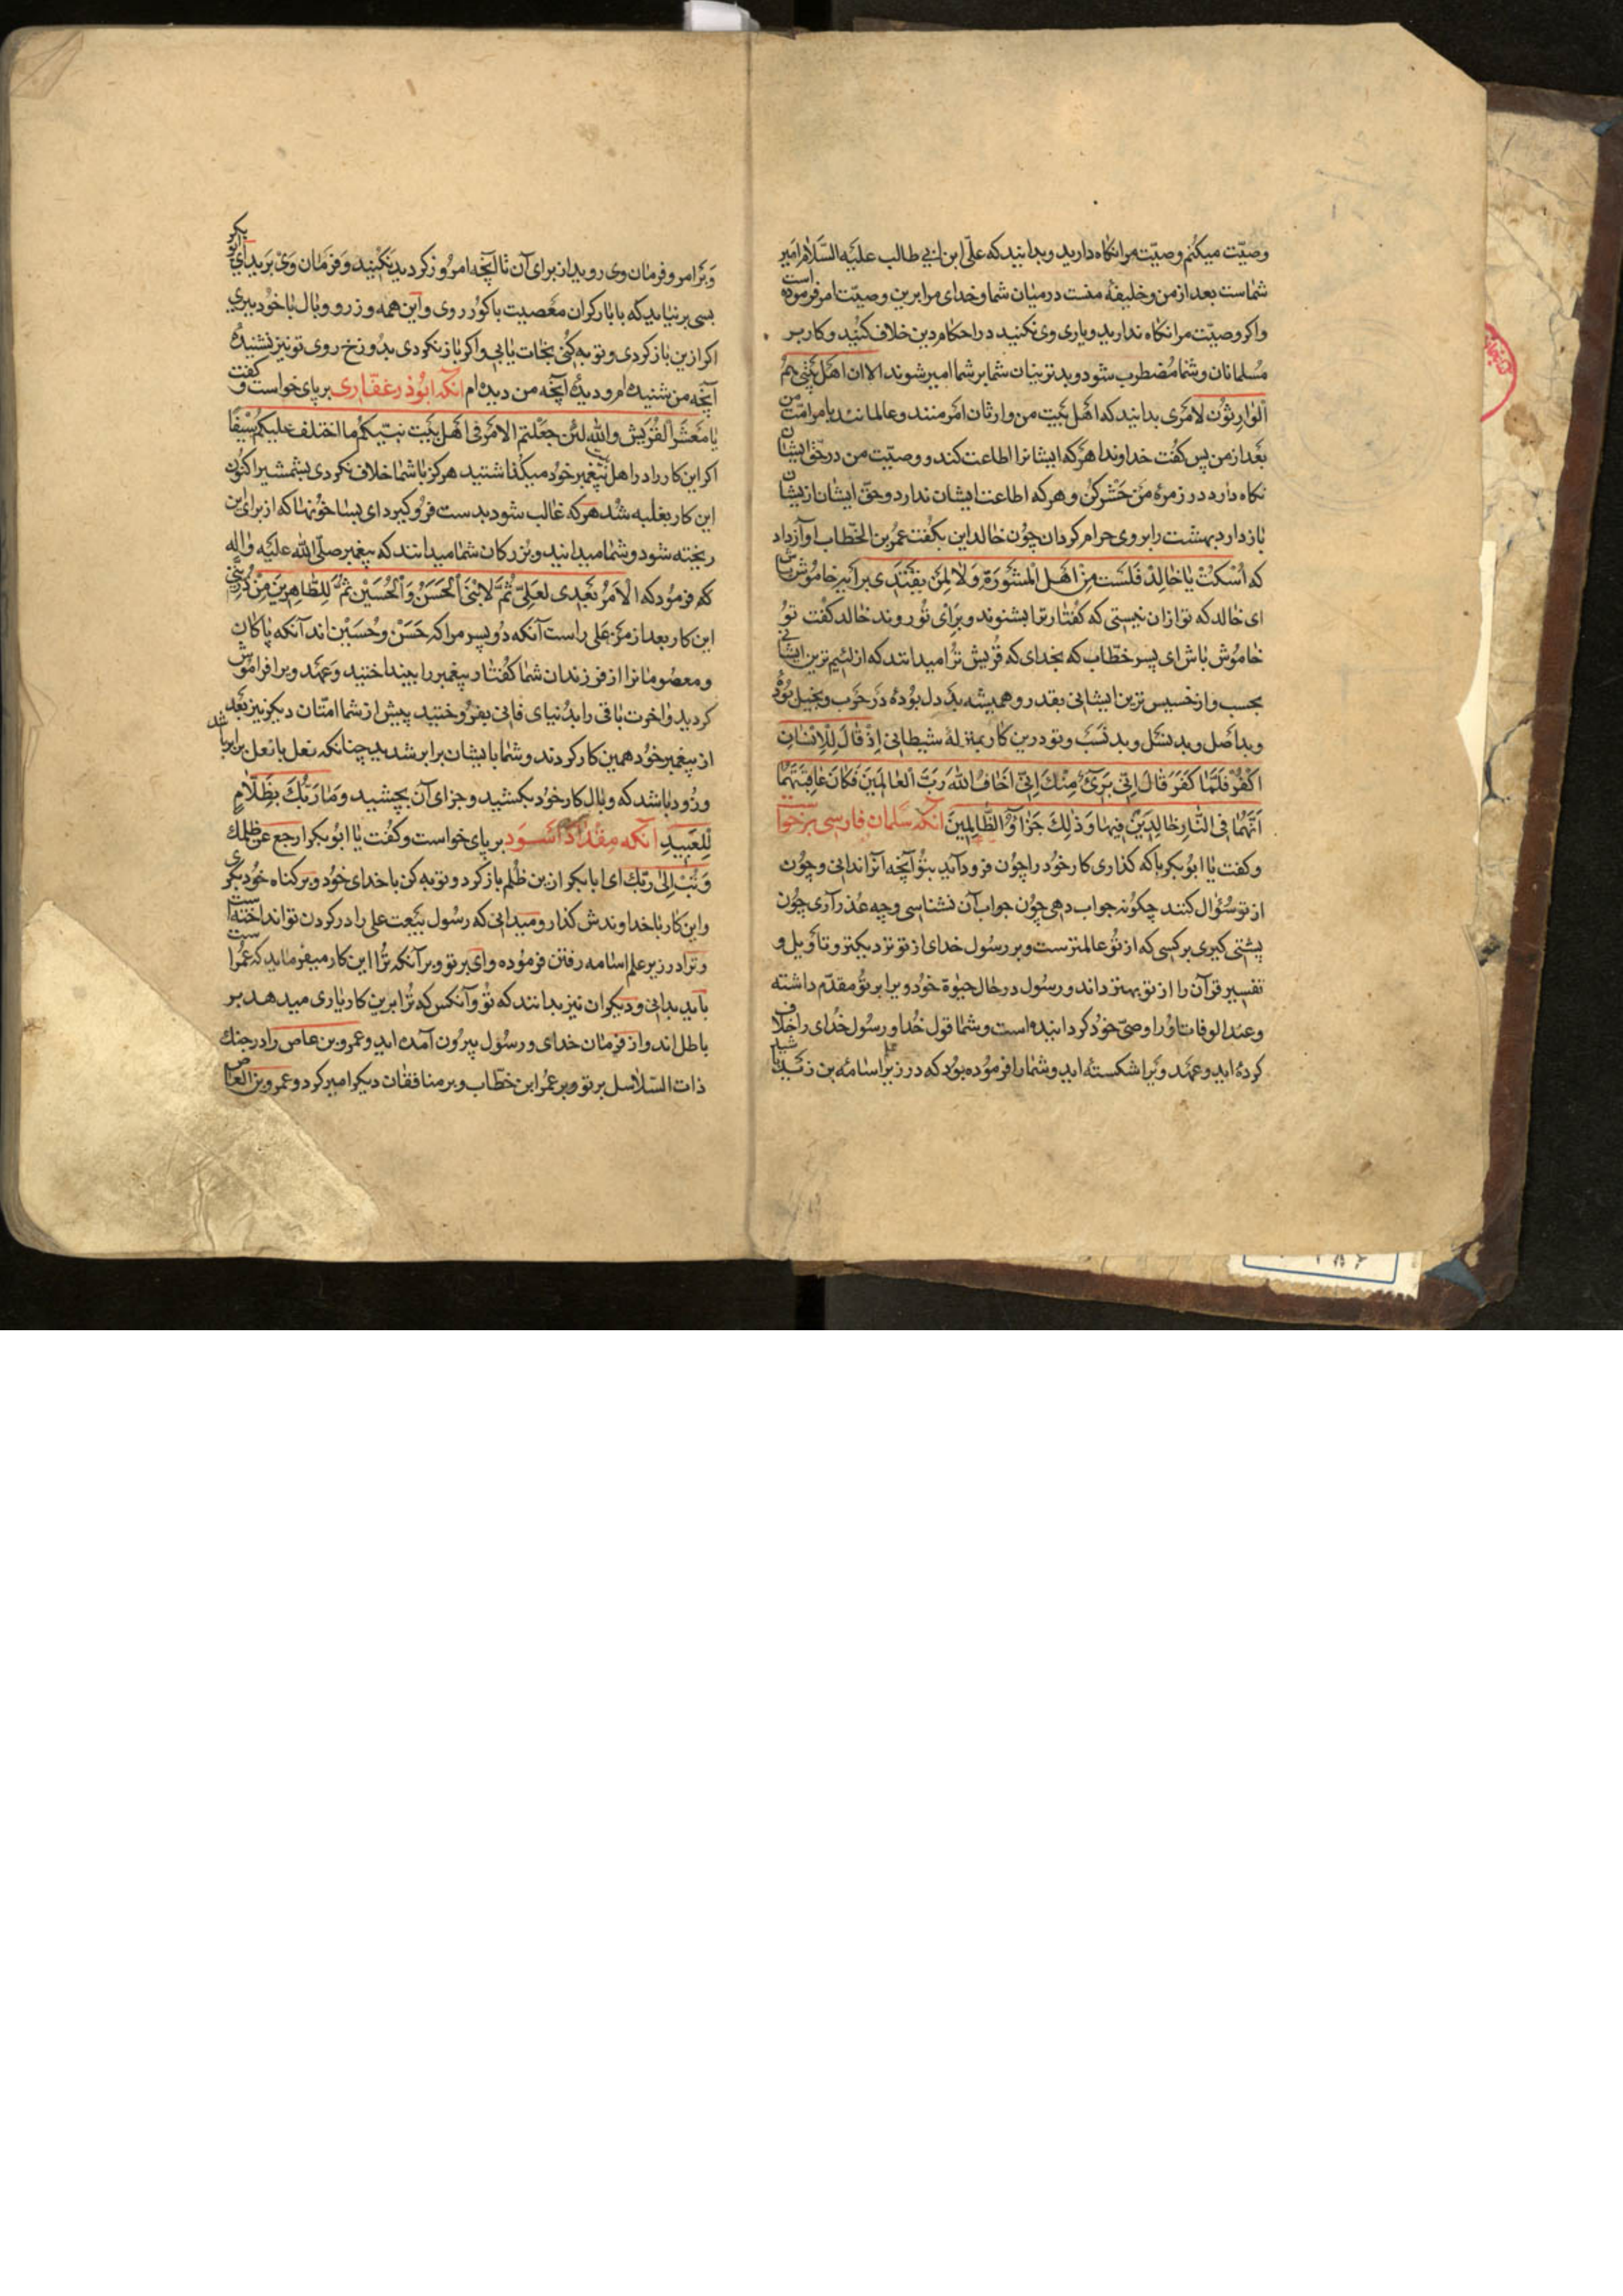 وصیّت میکنم وصیّت مرا نکاه دارید و بدانید که علّی ابن ابی طالب علیَه السَّلام امیر
شماست بعد از من و خلیفهٔ منست در میان شما و خدای مرا برین وصیّت امر فرموده است
واکر وصیّت مرا نکاه ندارید و یاری وی نکنید در احکام دین خلاف کنید و کار بر
مُسلمانان و شما مُضطرب شود و بدترینان شما بر شما امیر شوند الا ان اهل بیتی هم
الوارثون لامری بدانید که اهَل بَیت من وارثان امَر منند و عالمانند بامر امّت من
بَعد از من پس کفُت خداوندا هرَکه ایشانرا اطاعت کند و وصیّت من در حقّ ایشان
نکاه دارد در زمرهٔ مَن حَشر کُن و هر که اطاعت ایشان ندارد و حقّ ایشان ازیشان
باز دارد بهشت را بروی حرام کردان چوُن خالد این بکفُت عمُر بن الخطّاب اوآز داد
که اُسْکتْ یا خالِدْ فَلَسْت مِنْ اهَل المشَوَرَة وَلا لِمَن یقتَدَی برآیه خاموُش باش
ای خالد که تو ازان نیستی که کفُتار ترا بشنوند و برَای توُ روند خالد کفُت توُ
خاموُش باش ای پسر خطّاب که بخدای که قُریش ترُا میدانند که از لئیم ترین ایشانی
بحسب و از خسیس ترین ایشانی بقدر و همیشه بَد دل بوُدهٔ در حَرب و بخیل بوُدهٔ
و بد اصَل و بد نسَل و بد نسَبَ و تو درین کار بمنزلهٔ شیطانی اِذْ قٰالَ لِلْاِنْسٰانِ
اکْفُرْ فَلَمّٰا کَفَرَ قٰالَ اِنّی بَرَیءٌ مِنْكَ اِنّی اَخٰافُ اللهَ رَبَّ الْعٰالَمینَ فَکٰانَ عٰاقِبَتَهُمٰا
اَنَّهُمٰا فِی النّٰارِ خٰالِدَیْنِ فیهٰا وَ ذٰلِكَ جَزٰاؤُ الظّٰالِمینَ آنکه سَلمان فارسی برخواست
و کفت یا ابوُبکر باکه کذاری کار خود را چوُن فرود آید بتوُ آنچه آنرا ندانی و چوُن
از تو سؤال کنند چکوُنه جواب دهی چوُن جواب آن نشناسی و چه عذر آری چوُن
پشتی کیری بر کسی که از توُ عالمترست و بر رسُول خدای از تو نزدیکتر و تأویل و
تفسیر قرآن را از تو بهتر داند و رسوُل در حال حیوٰة خوُد ویرا بر توُ مقدّم داشته
و عند الوفات اوُرا وصیّ خوُد کردانیده است و شما قول خدا و رسوُل خدای را خلاف
کردهٔ اید و عهَد ویَرا شکستهٔ اید و شما را فرموُده بوُد که در زیر علم اسامه بن زَید باشید
وبَر امر و فرمان وی روید از برای آن تا آنچه امروُز کردید نکنید و فرَمان وَیْ برَید ای ابوُبکر
بسی برنیاید که با بار کران مَعصیت باکوُر روی و این همَه وزر و وبال با خوُد ببری
اکر ازین باز کردی و توبه کُنی نجات یابی و اکر باز نکردی بدوُزخ روی تو نیز شنیدهٔ
آنچَه من شنیدهٔ ام و دیدهٔ آنچَه من دیدهٔ ام آنکه ابوُذر غفاری بر پای خواست و کفُت
یا مَعَشرَ القُرَیش والله لئن جَعَلتم الامَر فی اهَل بَیت نبیّکم ما اختلف علیکم سَیفًا
اکر این کار را در اهل بیت پیَغمبر خوُد میکُذاشتید هرکز باشما خلاف نکردی بشمشیر اکنوُن
این کار بغلبه شُد هرَکه غالب شود بدست فروُ کیرد ای بسا خوُنها که از برای این
ریخته شود و شما میدانید و بزُرکان شما میدانند که پیغمبر صلّی الله علَیه وٰاله
که فرموُد که الْاَمَرُ بَعْدی لعَلِیّ ثُمَّ لِابْنَیَ اَلْحَسَنْ وَاْلْحُسَیْن ثمَّ لِلطّٰاهِرینَ مِنْ ذُرِّیَّتی
این کار بعد از منَ علی راست آنکه دوُ پسر مرا که حَسَنْ و حُسَیْن اند آنکه پاکان
و معصوُمانرا از فرزندان شما کفُتار پیغمبر را بینداختید و عَهَد ویرا فراموُش
کردید و اخرت باقی را بدُنیای فانی بفرُوختید پیش از شما امّتان دیکر نیز بعَد
از پیغمبر خوُد همین کار کردند و شما با ایشان برابر شدید چنانکه نعل با نعل برابر باشد
و زوُد باشد که وبال کار خوُد بکشید و جزای آن بچشید وَ مٰا رَبُّكَ بِظَلّٰامٍ
لِلْعَبیدِ آنکه مِقدٰاد اَسْوَد بر پای خواست و کفُت یا ابوُبکر ارجع عن ظلمك
وَ تُبْ اِلیٰ رَبِّكَ ای ابابکر ازین ظُلم باز کرد و توبه کن با خدای خوُد و بر کناه خوُد بکری
و این کار با خداوندش کذار و میدانی که رسُول بیَعت علی را در کردن تو انداختهٔ است
و ترا در زیر علم اسامه رفتن فرموُده وای بر تو و بر آنکه ترُا این کار میفرماید که عمُرا
باید بدانی و دیکران نیز بدانند که توُ و آنکس که ترُا برین کار یاری میدهد بر
باطل اند و از فرمان خدای و رسوُل بیروُن آمده اید و عمرو بن عاص را در جنك
ذات السّلاسل بر تو و بر عمُر ابن خطّاب و بر منافقان دیکر امیر کرد و عمرو بن العاص